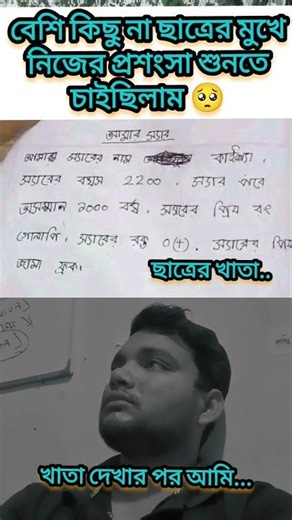 বেশি কিছু না ছাত্রের মুখে
নিজের প্রশংসা শুনতে
চাইছিলাম 🥺
আমার স্যার
আমার স্যারের নাম কাইল্যা,
স্যারের বয়স 2200. স্যার
১০০০ বর্ষ. স্যারের প্রিয় রং
গোলাপি, স্যারের রক্ত O(+). স্যারের প্রিয়
জামা ফ্রক।
ছাত্রের খাতা..
খাতা দেখার পর আমি...